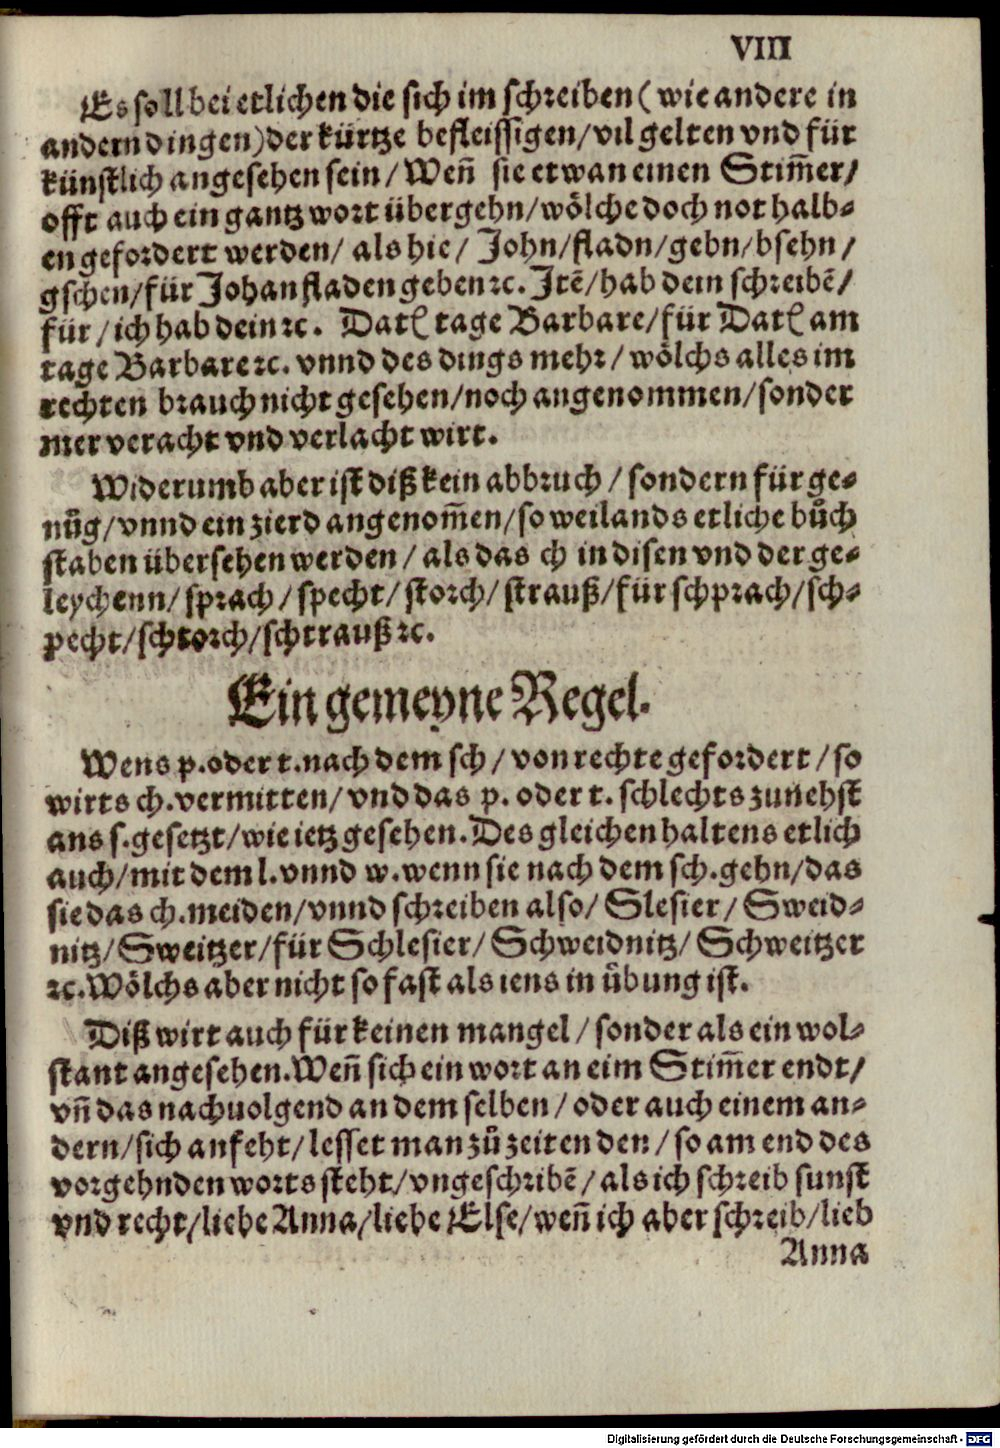 VIII
Es soll bei etlichen die sich im schreiben (wie andere in
andern dingen) der kürtze befleissigen/ vil gelten vnd für
künstlich angesehen sein/ Weñ sie etwan einen Stim̃er/
offt auch ein gantz wort übergehn/ wölche doch not halb-
en gefordert werden/ als hie/ John/ fladn/ gebn/ bsehn/
gschen/ für Johan fladen geben ꝛc. Itẽ/ hab dein schreibẽ/
für/ ich hab dein ꝛc. Datꝭ tage Barbare/ für Datꝭ am
tage Barbare ꝛc. vnnd des dings mehr/ wölchs alles im
rechten brauch nicht gesehen/ noch angenommen/ sonder
mer veracht vnd verlacht wirt.
Widerumb aber ist diß kein abbruch/ sondern für ge-
nůg/ vnnd ein zierd angenom̃en/ so weilands etliche bůch
staben übersehen werden/ als das ch in disen vnd der ge-
leychenn/ sprach/ specht/ storch/ strauß/ für schprach/ sch-
pecht/ schtorch/ schtrauß ꝛc.
Ein gemeyne Regel.
Wens p. oder t. nach dem sch/ von rechte gefordert/ so
wirts ch. vermitten/ vnd das p. oder t. schlechts zunehst
ans s. gesetzt/ wie ietz gesehen. Des gleichen haltens etlich
auch/ mit dem l. vnnd w. wenn sie nach dem sch. gehn/ das
sie das ch. meiden/ vnnd schreiben also/ Slesier/ Sweid-
nitz/ Sweitzer/ für Schlesier/ Schweidnitz/ Schweitzer
ꝛc. Wölchs aber nicht so fast als iens in übung ist.
Diß wirt auch für keinen mangel/ sonder als ein wol-
stant angesehen. Weñ sich ein wort an eim Stim̃er endt/
vñ das nachuolgend an dem selben/ oder auch einem an-
dern/ sich anfeht/ lesset man zů zeiten den/ so am end des
vorgehnden worts steht/ vngeschribẽ/ als ich schreib sunst
vnd recht/ liebe Anna/ liebe Else/ weñ ich aber schreib/ lieb
Anna
Digitalisierung gefördert durch die Deutsche Forschungsgemeinschaft - DFG